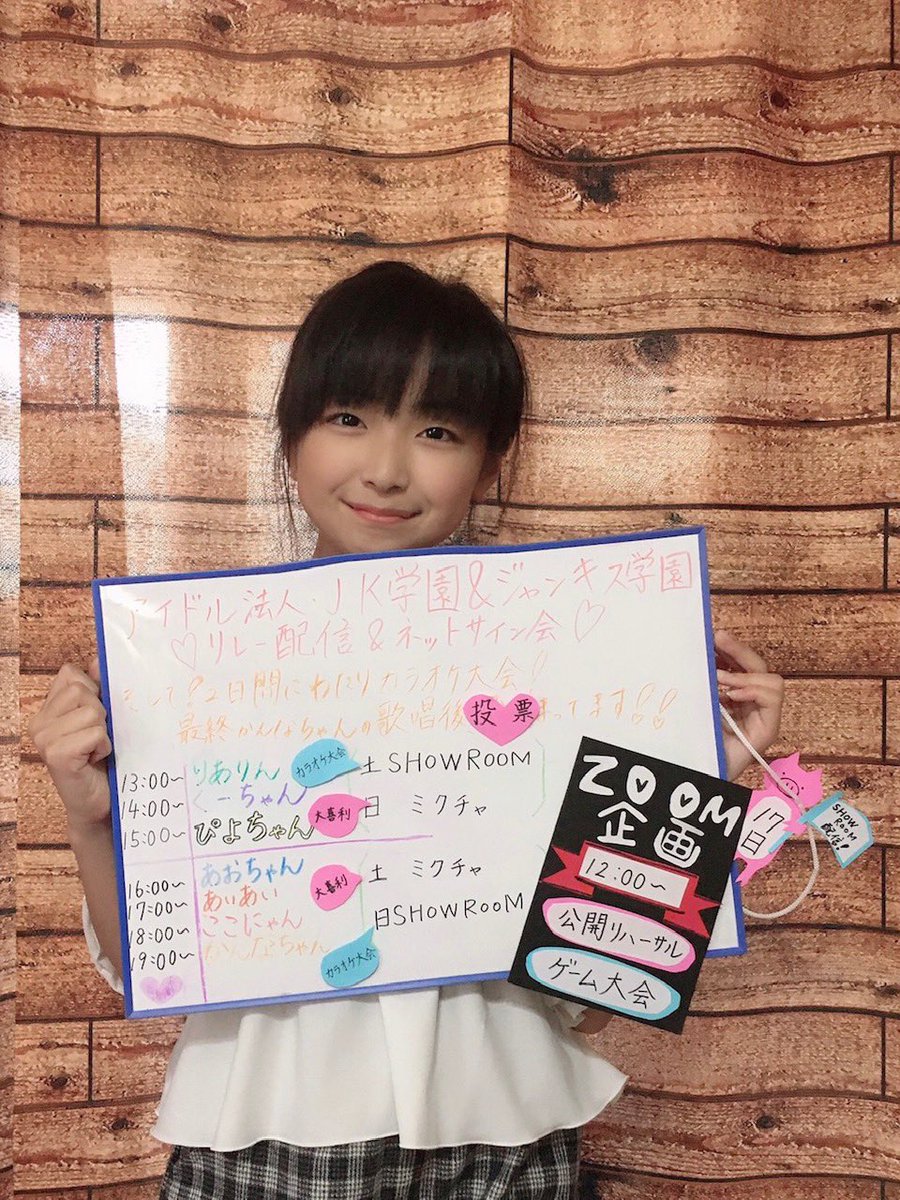 アイドル法人・JK学園&ジャンキス学園
♡リレー配信&ネットサイン会♡
そして!2日間にわたりカラオケ大会!
最終かんなちゃんの歌唱後投票まってます!!
13:00~ りありん カラオケ大会 土 SHOWROOM
14:00~ くーちゃん
15:00~ ぴよちゃん 大喜利 日 ミクチャ
16:00~ あおちゃん 土 ミクチャ
17:00~ あいあい 大喜利
18:00~ ここにゃん 日 SHOWROOM
19:00~ かんなちゃん カラオケ大会
ZOOM
企画
12:00~
公開リハーサル
ゲーム大会
17日
SHOW
ROOM
配信!